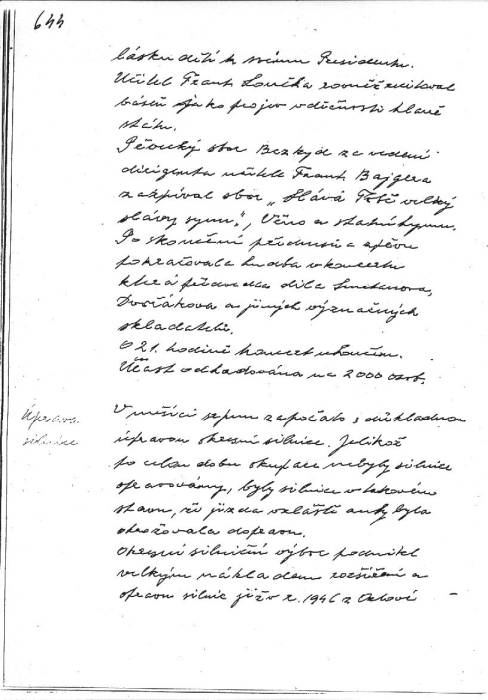 644
lásku dětí k svému Presidentu.
Učitel Frant. Loučka rovněž recitoval
báseň jako projev vděčnosti hlavě
státu.
Pěvecký sbor Bezkyd za vedení
dirigenta učitele Frant. Bajgera
zazpíval sbor "Sláva Tobě velký
slávy synu", Věno a statní hymnu.
Po skončení přednesu a zpěvu
pokračovala hudba v koncertu
která předvedla díla Smetanova,
Dvořákova a jiných význačných
skladatelů.
O 21. hodině koncert ukončen.
Účast odhadována na 2000 osob.
Úprava
silnice
V měsíci srpnu započato s důkladnou
úpravou okresní silnice. Jelikož
po celou dobu okupace nebyly silnice
opravovány, byly silnice v takovém
stavu, že jízda vzláště auty byla
ohrožovala dopravu.
Okresní silniční výbor podnikl
velkým nákladem rozšíření a
opravu silnic již v r. 1946 z Orlové